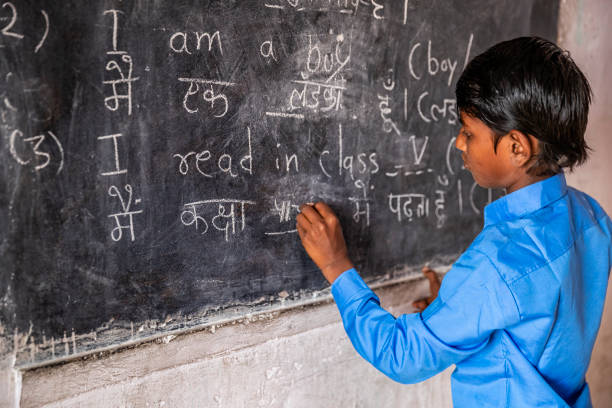 2) I am a boy (boy/
मैं एक लड़का हूँ।
(3) I read in class V
मैं कक्षा में पढ़ता हूँ।